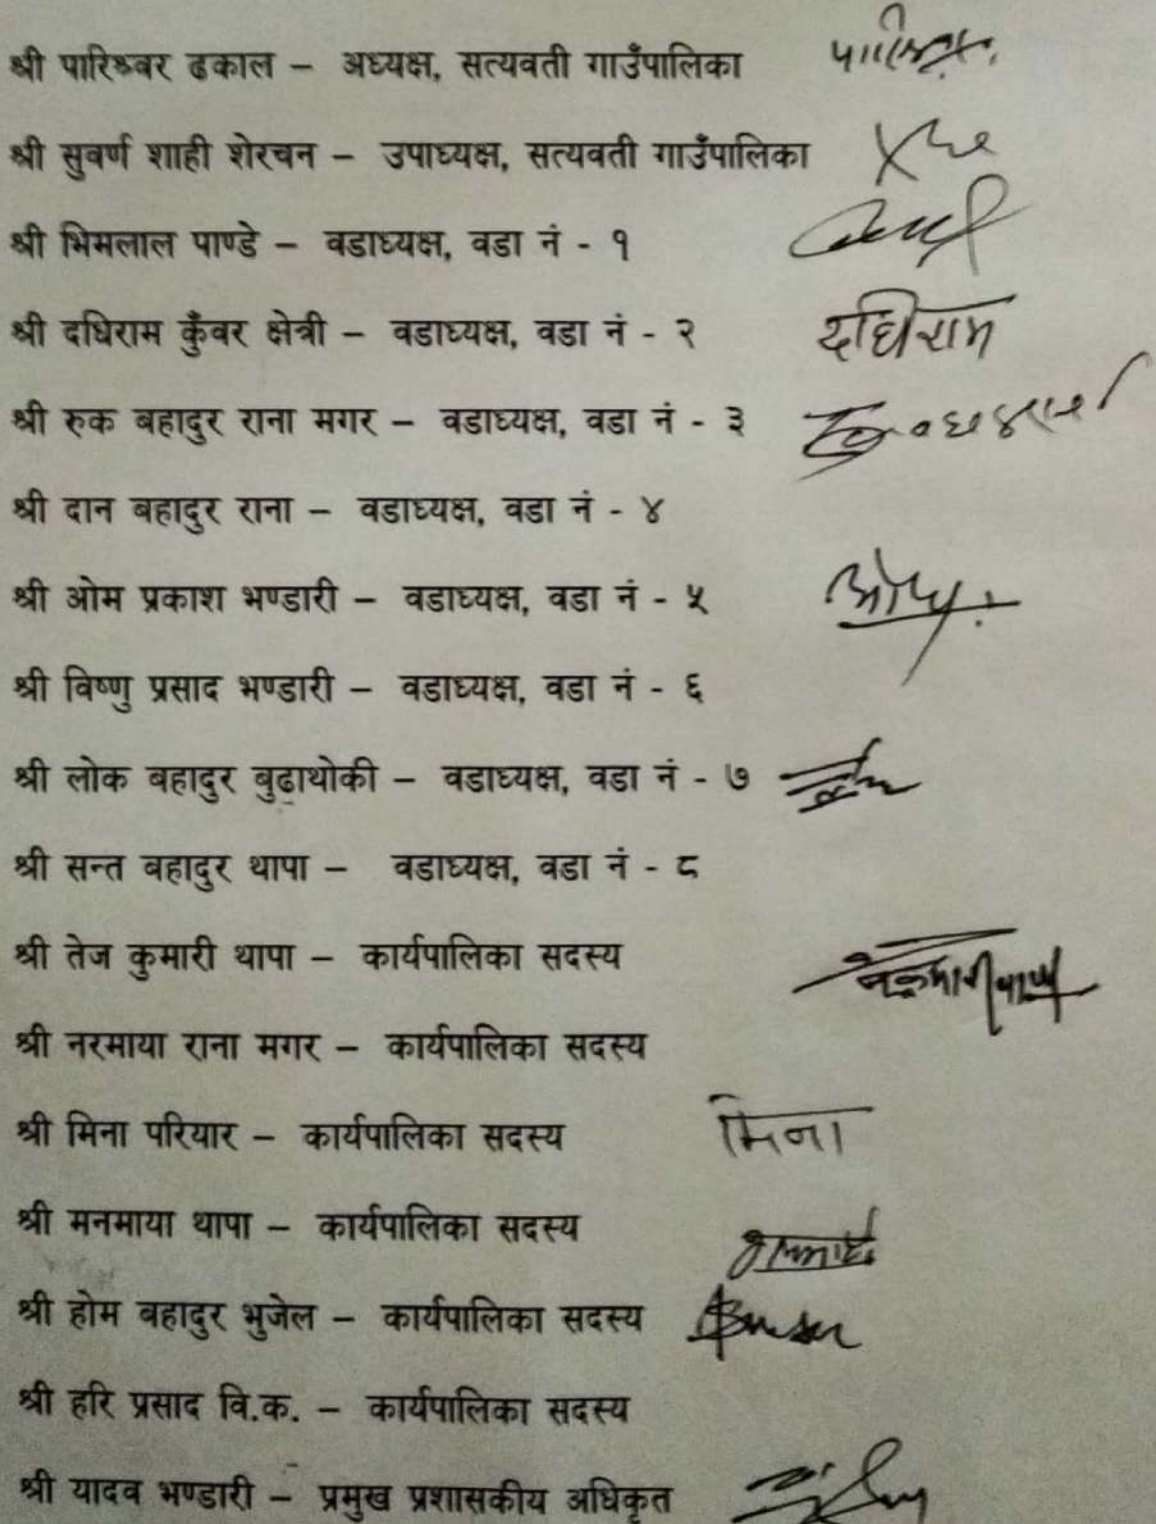 श्री पारिश्वर ढकाल – अध्यक्ष, सत्यवती गाउँपालिका
श्री सुवर्ण शाही शेरचन – उपाध्यक्ष, सत्यवती गाउँपालिका
श्री भिमलाल पाण्डे – वडाध्यक्ष, वडा नं - १
श्री दधिराम कुँवर क्षेत्री – वडाध्यक्ष, वडा नं - २ दधिराम
श्री रुक बहादुर राना मगर – वडाध्यक्ष, वडा नं - ३
श्री दान बहादुर राना – वडाध्यक्ष, वडा नं - ४
श्री ओम प्रकाश भण्डारी – वडाध्यक्ष, वडा नं - ५
श्री विष्णु प्रसाद भण्डारी – वडाध्यक्ष, वडा नं - ६
श्री लोक बहादुर बुढाथोकी – वडाध्यक्ष, वडा नं - ७
श्री सन्त बहादुर थापा – वडाध्यक्ष, वडा नं - ८
श्री तेज कुमारी थापा – कार्यपालिका सदस्य
श्री नरमाया राना मगर – कार्यपालिका सदस्य
श्री मिना परियार – कार्यपालिका सदस्य मिना
श्री मनमाया थापा – कार्यपालिका सदस्य
श्री होम बहादुर भुजेल – कार्यपालिका सदस्य
श्री हरि प्रसाद वि.क. – कार्यपालिका सदस्य
श्री यादव भण्डारी – प्रमुख प्रशासकीय अधिकृत